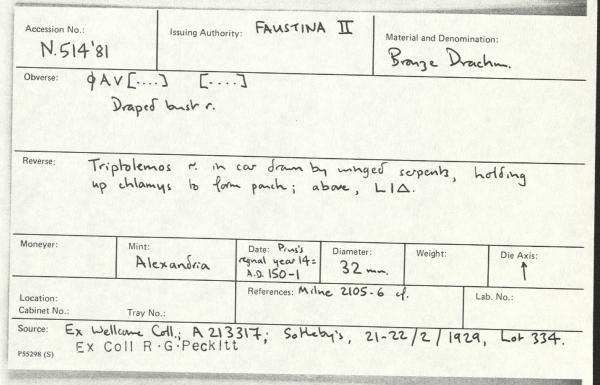 Accession No.:
N.514'81
Issuing Authority: FAUSTINA II
Material and Denomination:
Bronze Drachm.
Obverse: ΦAV[....] [....]
Draped bust r.
Reverse: Triptolemos r. in car drawn by winged serpents, holding
up chlamys to form pouch; above, LIΔ.
Moneyer:
Mint:
Alexandria
Date: Pius's
regnal year 14=
A.D. 150-1
Diameter:
32 mm.
Weight:
Die Axis:
↑
Location:
Cabinet No.: Tray No.:
References: Milne 2105-6 cf.
Lab. No.:
Source: Ex Wellcome Coll.; A 213317; Sotheby's, 21-22/2/1929, Lot 334.
Ex Coll R.G.Peckitt
P55298 (S)